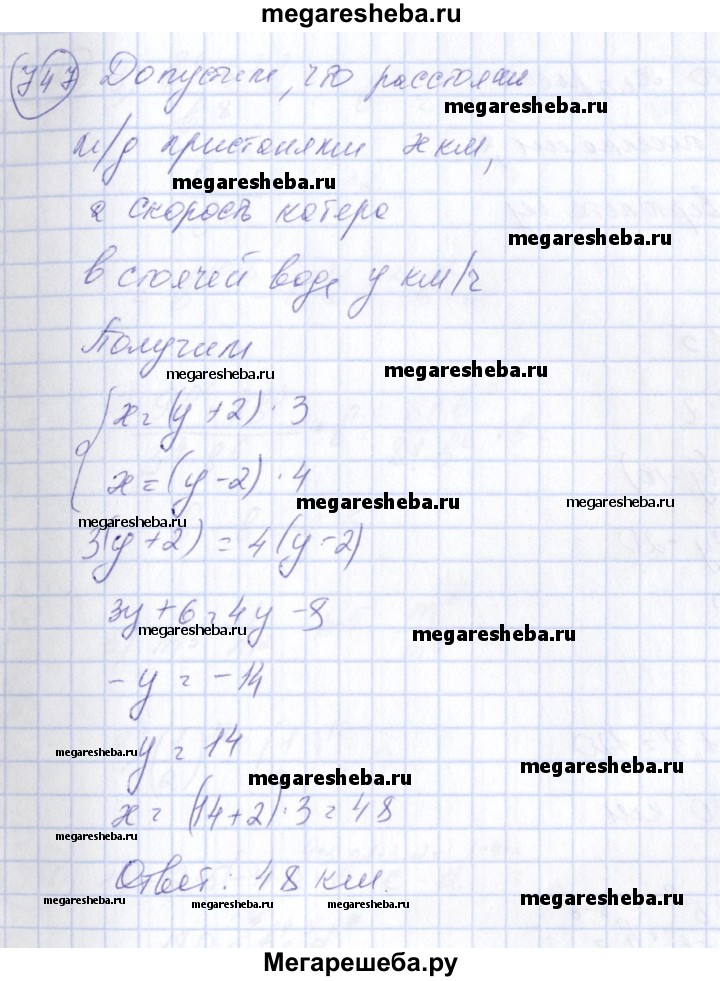 megaresheba.ru
747 Допустим, что расстоян
megaresheba.ru
м/д пристанями x км,
megaresheba.ru
а скорость катера
megaresheba.ru
в стоячей воде y км/ч
Получим
megaresheba.ru
megaresheba.ru
x = (y + 2) · 3
x = (y - 2) · 4
megaresheba.ru
megaresheba.ru
megaresheba.ru
3(y + 2) = 4(y - 2)
3y + 6 = 4y - 8
megaresheba.ru
megaresheba.ru
- y = - 14
y = 14
megaresheba.ru
megaresheba.ru
megaresheba.ru
x = (14 + 2) · 3 = 48
megaresheba.ru
Ответ: 48 км.
megaresheba.ru
megaresheba.ru
megaresheba.ru
megaresheba.ru
Мегарешеба.ру